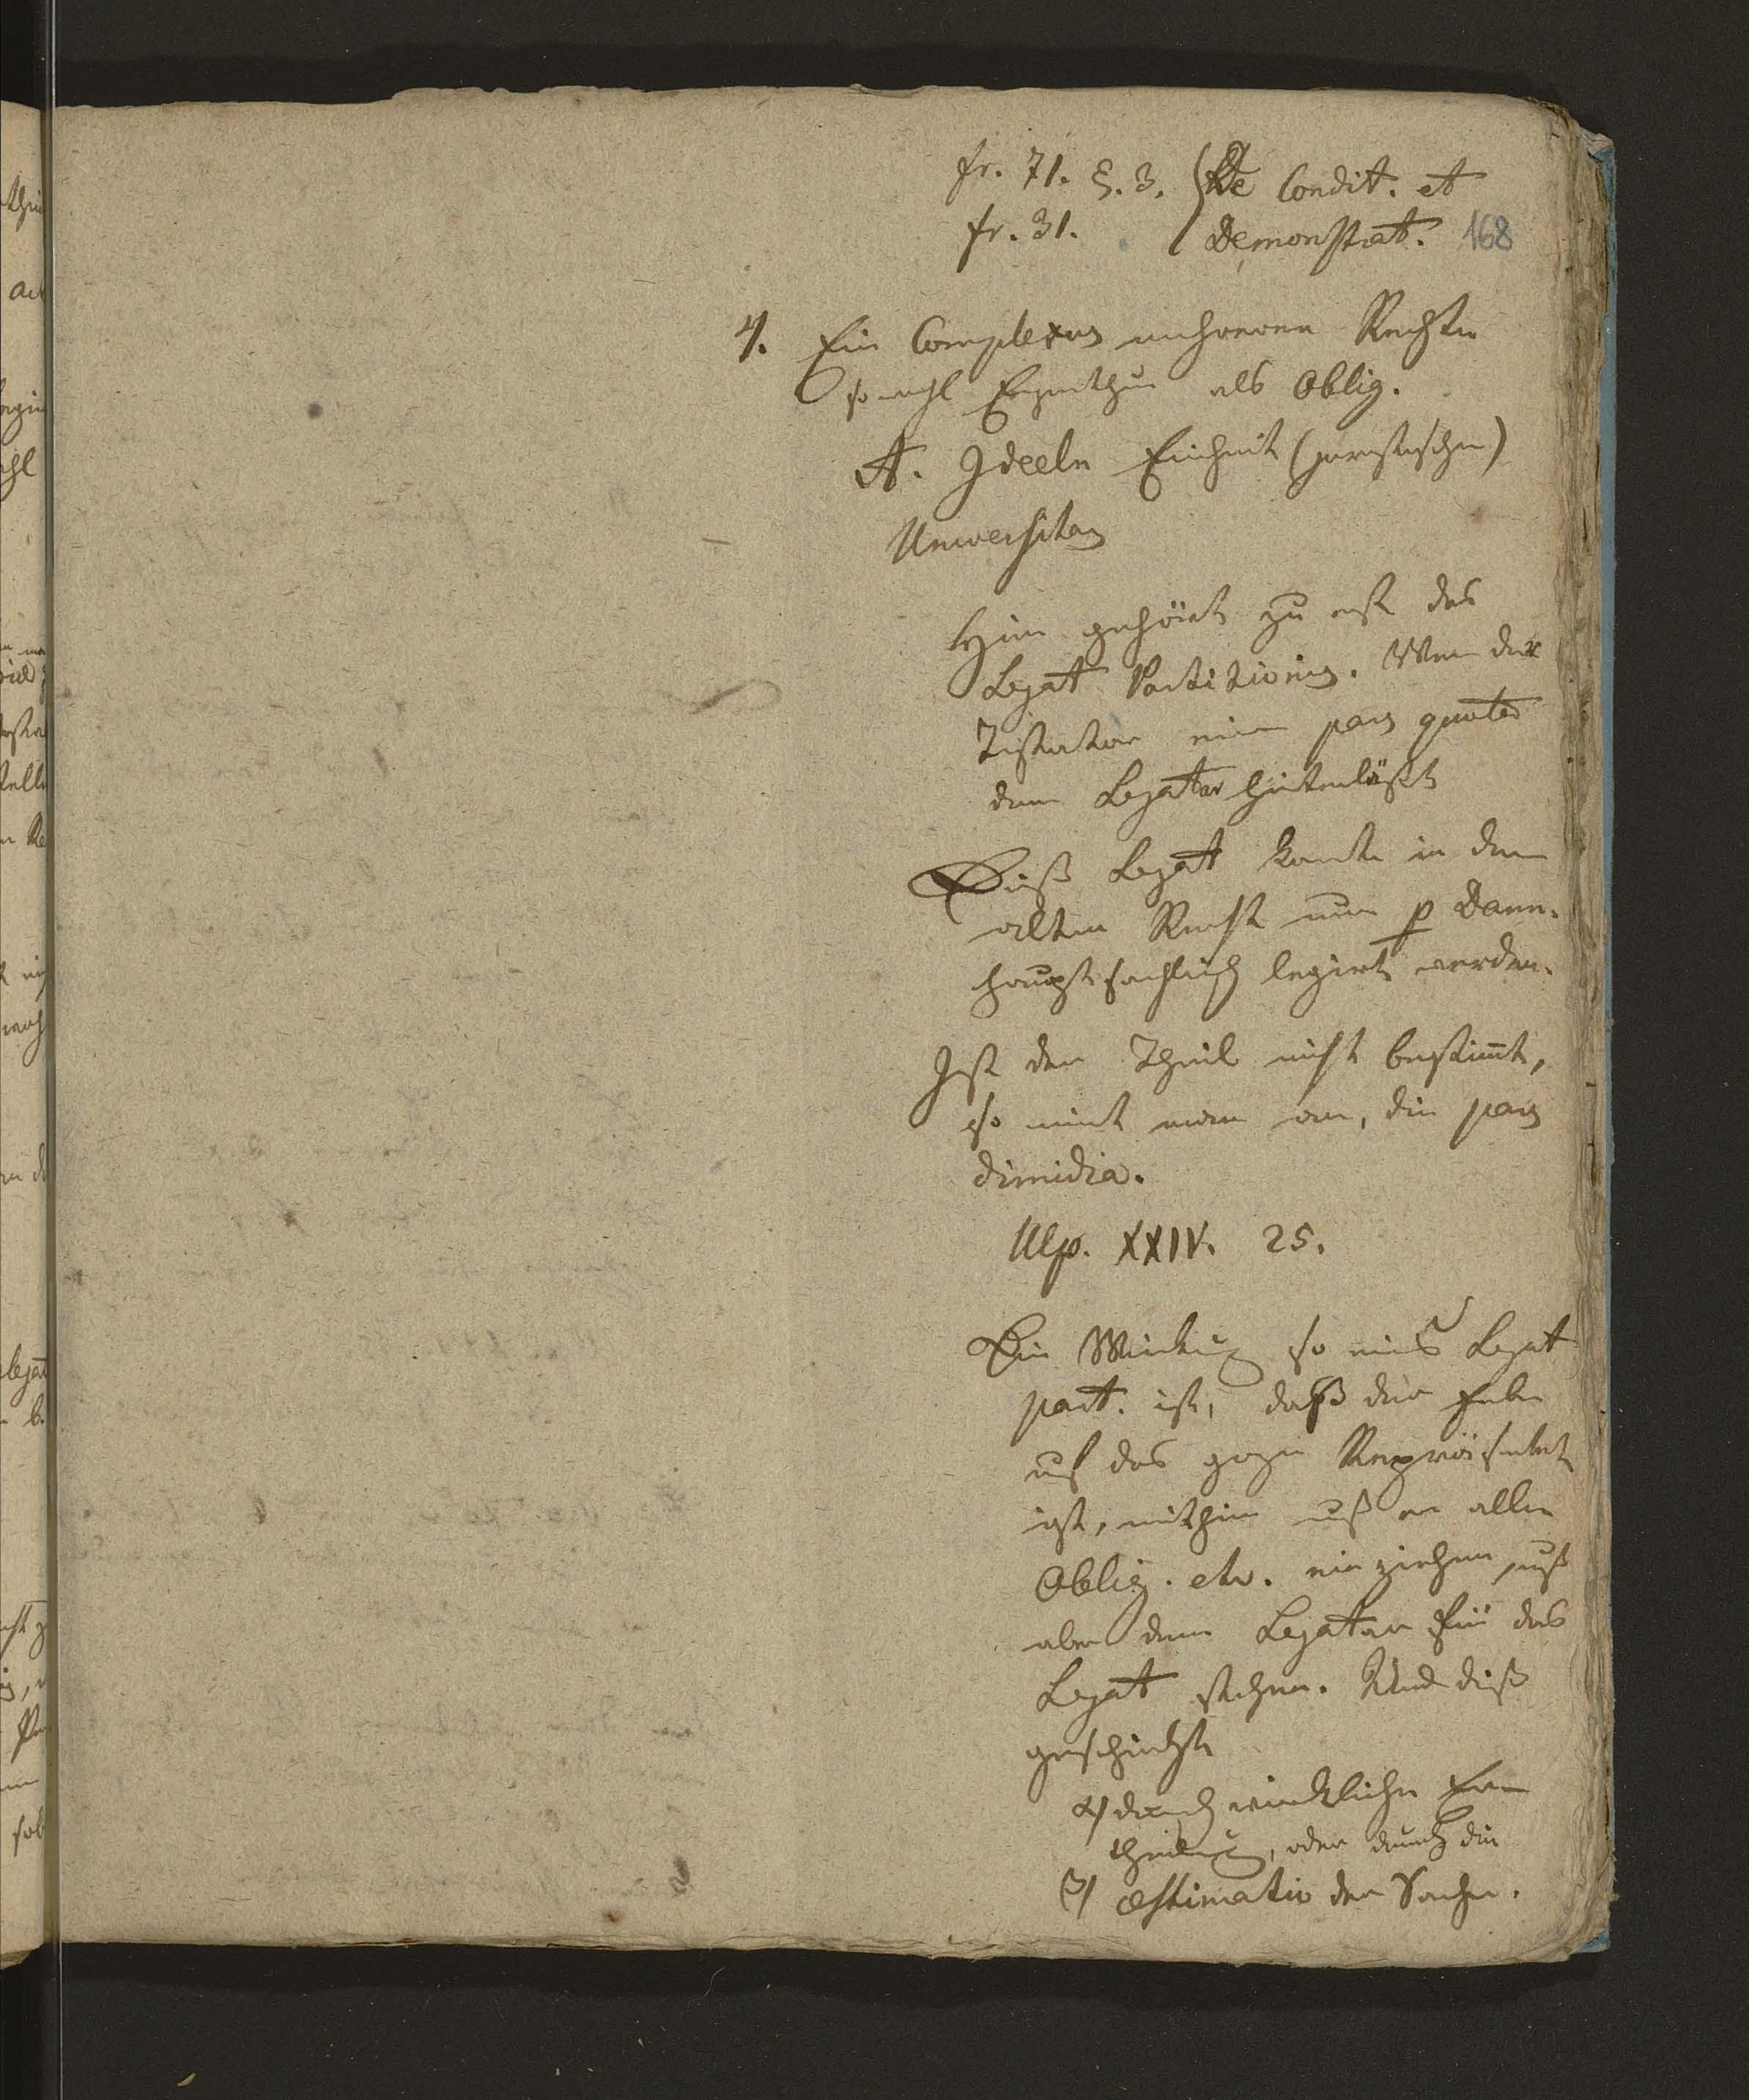 fr. 71. §. 3. De Condit. et
fr. 31. Demonstrat. 168
4. Ein Complexus mehrerer Rechte
sowohl Eigenthum als Oblig.
A. Ideele Einheit (juristische)
Universitas
Hier gehört zu erst das
Legat Partitionis. Wenn der
Testator eine pars quota
dem Legatar hinterläßt
Dieß Legat konte in dem
alten Recht nur p Damn.
hauptsachlich legirt werden.
Ist der Theil nicht bestimt,
so nimt man an, die pars
dimidia.
Ulp. XXIV. 25.
Die Wirkung so eines Legat
part. ist, daß der Erbe
auf das ganze Repräsentant
ist, mithin muß er alle
Oblig. etc. einziehen, muß
aber dem Legatar für das
Legat stehen. Und dieß
geschieht
α) durch wirkliche Erb
theilung, oder durch die
β) æstimatio der Sache.